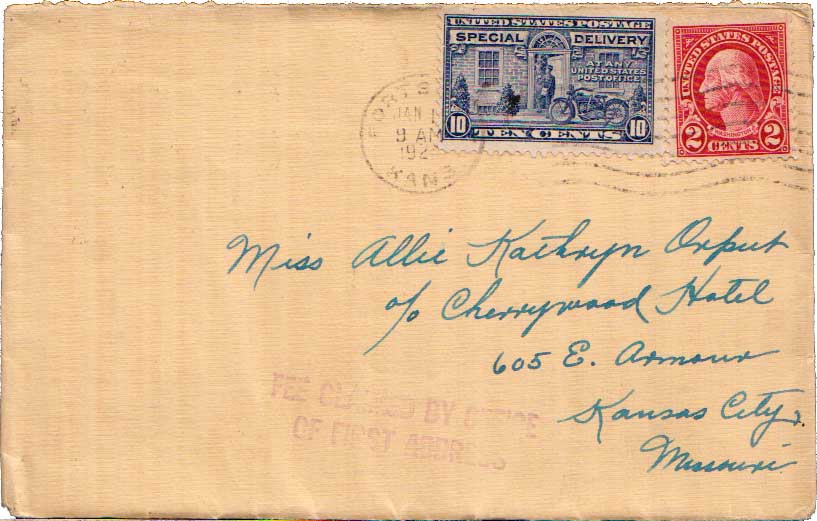 UNITED STATES POSTAGE
SPECIAL DELIVERY
AT ANY
UNITED STATES
POST OFFICE
10 TEN CENTS 10
UNITED STATES POSTAGE
WASHINGTON
2 CENTS 2
FORT S
JAN 1
9 AM
192
KANS
Miss Allie Kathryn Orput
c/o Cherrywood Hotel
605 E. Armour
Kansas City,
Missouri
FEE CLAIMED BY OFFICE
OF FIRST ADDRESS